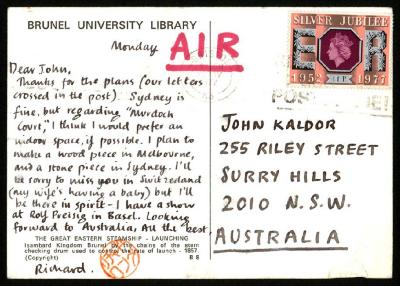 BRUNEL UNIVERSITY LIBRARY
Monday
AIR
Dear John,
Thanks for the plans (our letters
crossed in the post). Sydney is
fine, but regarding "Murdoch
Court," I think I would prefer an
indoor space, if possible. I plan to
make a wood piece in Melbourne,
and a stone piece in Sydney. I'll
be sorry to miss you in Switzerland
(my wife's having a baby) but I'll
be there in spirit - I have a show
at Rolf Preisig in Basel. Looking
forward to Australia, All the best,
THE GREAT EASTERN STEAMSHIP - LAUNCHING
Isambard Kingdom Brunel by the chains of the stern
checking drum used to control the rate of launch - 1857
(Copyright) B 8
Richard.
SILVER JUBILEE
E R
1952 11P 1977
JOHN KALDOR
255 RILEY STREET
SURRY HILLS
2010 N.S.W.
AUSTRALIA